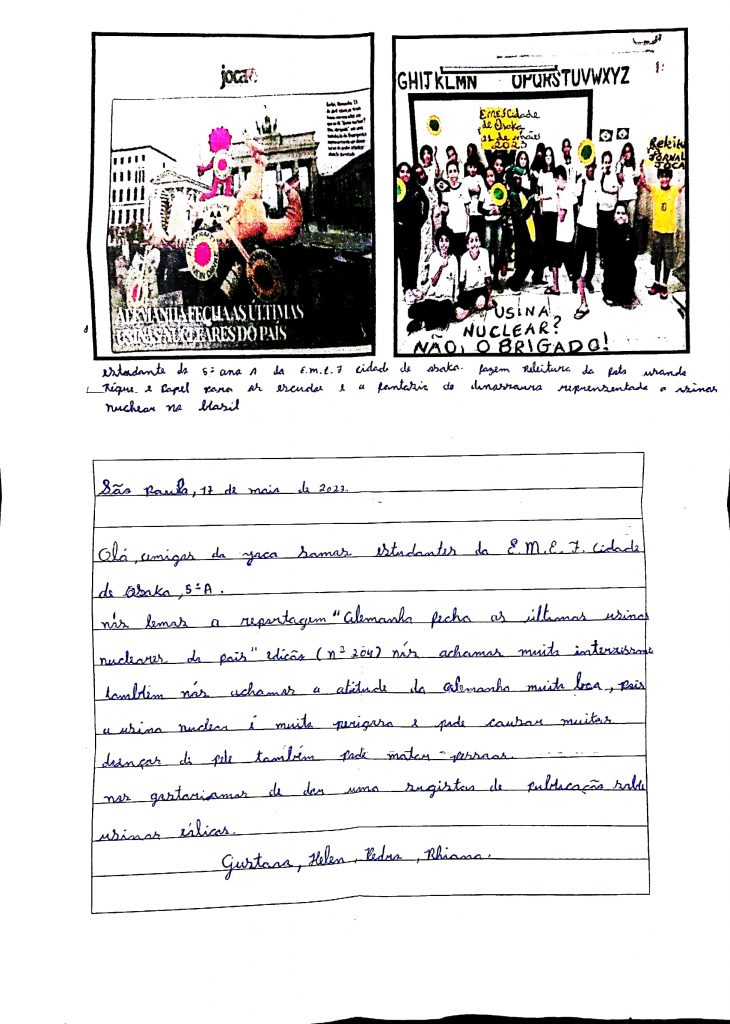 joca
ALEMANHA FECHA AS ÚLTIMAS
USINAS NUCLEARES DO PAÍS
GHIJKLMN OPQRSTUVWXYZ
EMEF Cidade
de Osaka
de maio
2023
JORNAL
JOCA
USINA
NUCLEAR?
NÃO, OBRIGADO!
estudante da 5º ano A da E.M.E.F cidade de osaka. fazem releitura da foto usando
e Papel para os escudos e a fantasia de dinossauro reprensentada a usinas
nuclear no Brasil
São Paulo, 17 de maio de 2023.
Olá, amigos da joca somos estudantes da E.M.E.F. cidade
de osaka, 5ºA.
nós lemos a reportagem "alemanha fecha as últimas usinas
nucleares do país" edição (nº 204) nós achamos muito
também nós achamos a atitude da alemanha muito boa, pois
a usina nuclear é muito perigosa e pode causar muitas
doenças de pele também pode matar pessoas.
nos gostariamos de dar uma sugistão de publicação sobre
usinas eólicas.
Gustavo, Helen, Pedro, Rhiana.